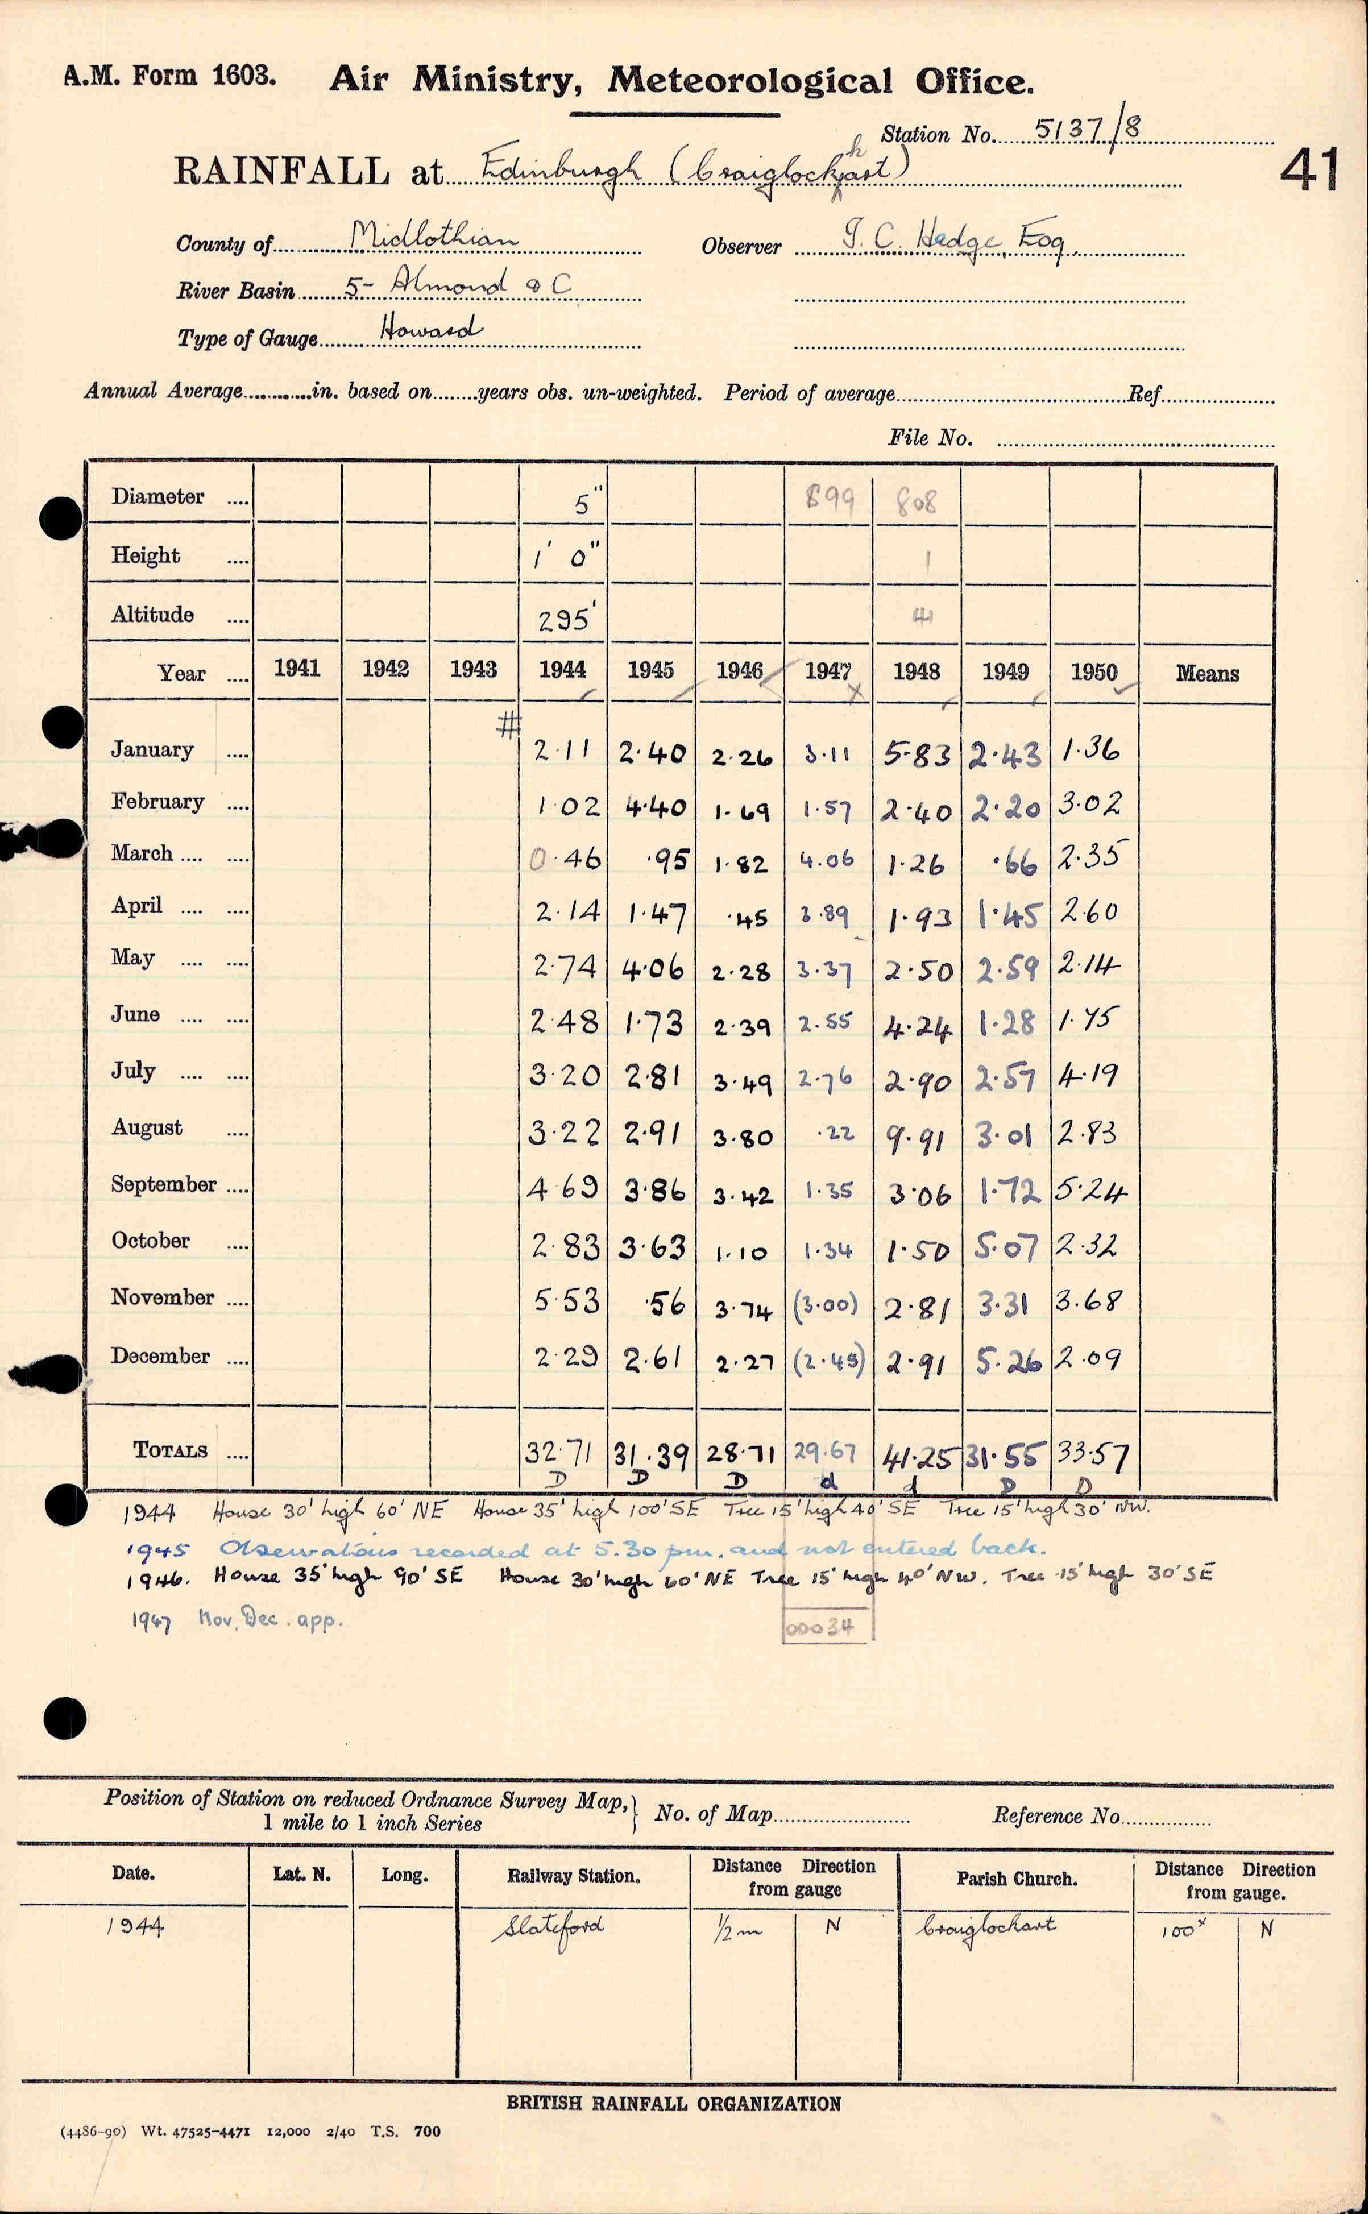 A.M. Form 1603. Air Ministry, Meteorological Office.
Station No. 5137/8
41
RAINFALL at Edinburgh (Craiglockhart)
County of Midlothian Observer
River Basin 5- Almond & C
Type of Gauge Howard
Annual Average in. based on years obs. un-weighted. Period of average Ref
File No.
Diameter .... 5" 899 808
Height .... 1' 0" 1
Altitude .... 295'
Year .... 1941 1942 1943 1944 1945 1946 1947 1948 1949 1950 Means
#
January .... 2.11 2.40 2.26 3.11 5.83 2.43 1.36
February .... 1.02 4.40 1.69 1.57 2.40 2.20 3.02
March .... .... 0.46 .95 1.82 4.06 1.26 .66 2.35
April .... .... 2.14 1.47 .45 3.89 1.93 1.45 2.60
May .... .... 2.74 4.06 2.28 3.37 2.50 2.59 2.14
June .... .... 2.48 1.73 2.39 2.55 4.24 1.28 1.75
July .... .... 3.20 2.81 3.49 2.76 2.90 2.57 4.19
August .... 3.22 2.91 3.80 .22 9.91 3.01 2.83
September .... 4.69 3.86 3.42 1.35 3.06 1.72 5.24
October .... 2.83 3.63 1.10 1.34 1.50 5.07 2.32
November .... 5.53 .56 3.74 (3.00) 2.81 3.31 3.68
December .... 2.29 2.61 2.27 (2.45) 2.91 5.26 2.09
TOTALS .... 32.71 31.39 28.71 29.67 41.25 31.55 33.57
D D D d d D D
1944 House 30' high 60' NE House 35' high 100' SE Tree 15' high 40' SE Tree 15' high 30' NW.
1945 Observations recorded at 5.30 pm. and not entered back.
1946. House 35' high 90' SE House 30' high 60' NE Tree 15' high 40' NW. Tree 15' high 30' SE
1947 Nov, Dec. app.
00034
Position of Station on reduced Ordnance Survey Map, 1 mile to 1 inch Series } No. of Map Reference No
Date. Lat. N. Long. Railway Station. Distance Direction from gauge Parish Church. Distance Direction from gauge.
1944 Slateford ½m N Craiglockart 100x N
BRITISH RAINFALL ORGANIZATION
(4486-90) Wt. 47525-4471 12,000 2/40 T.S. 700